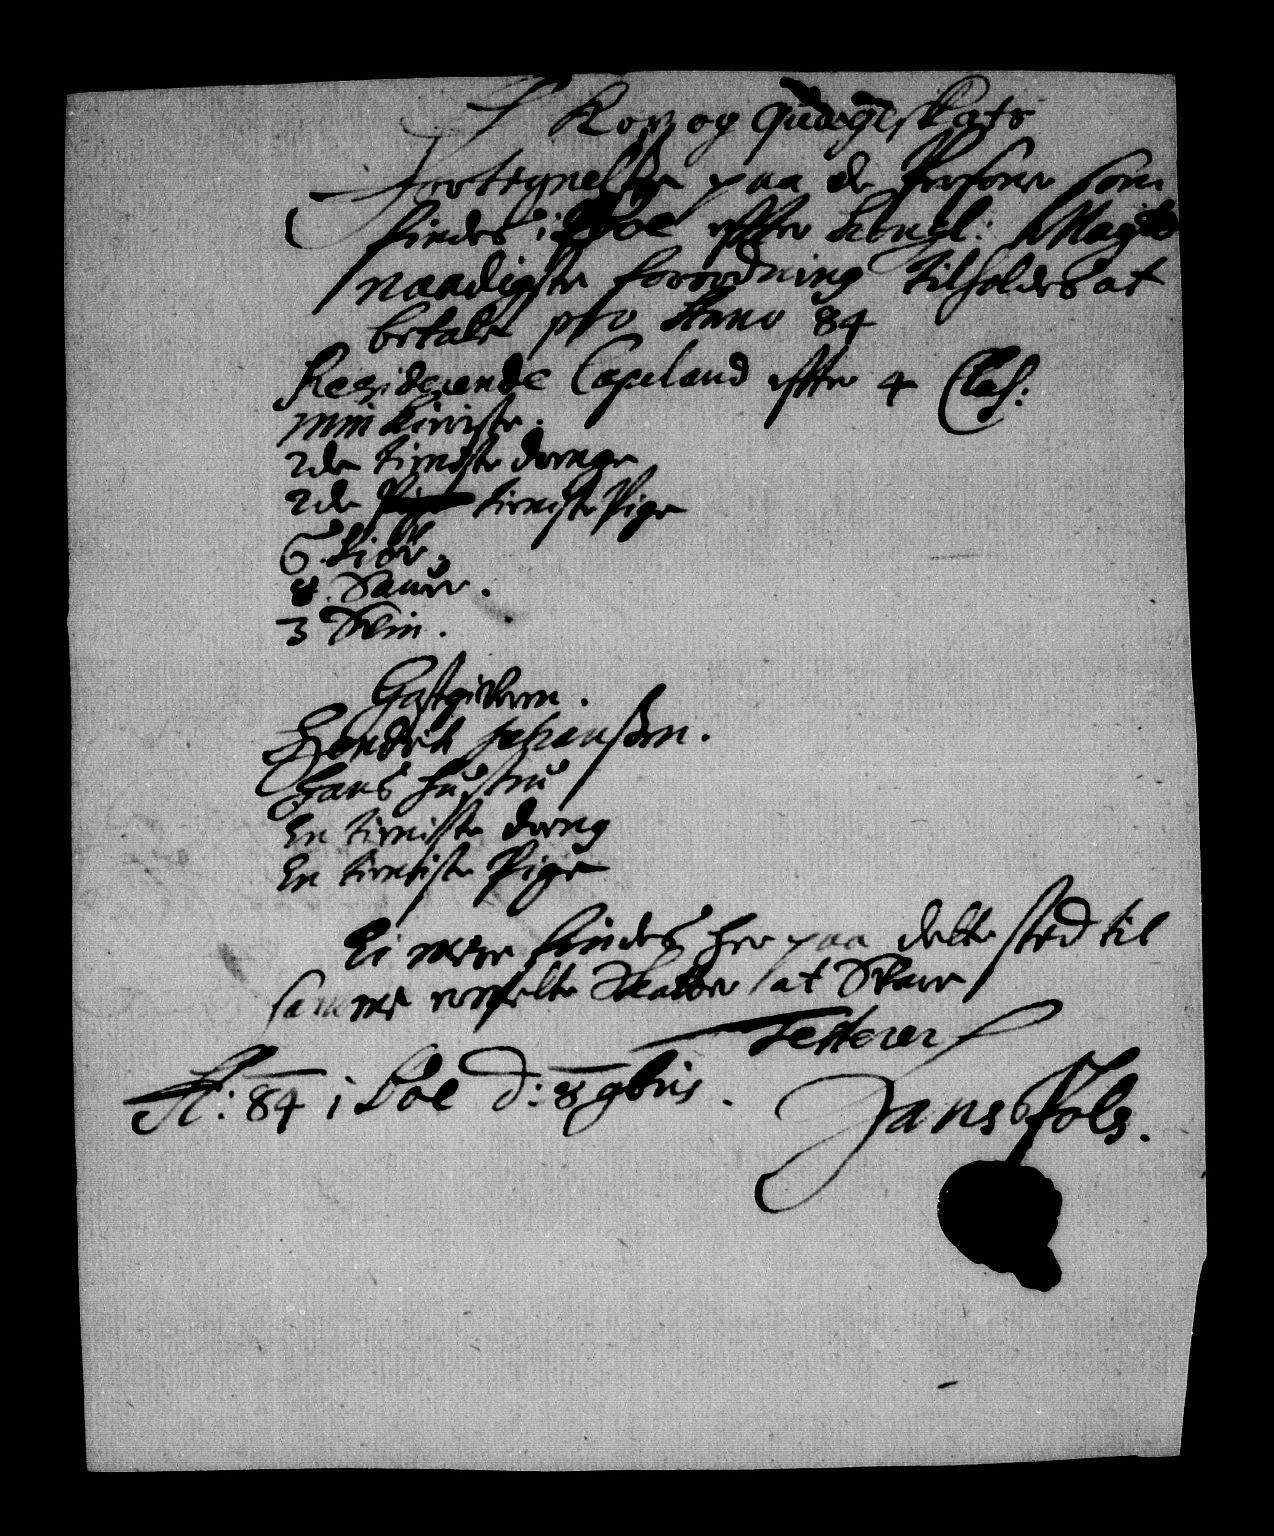 Kop og qvægskats
Fortegnelße paa de Persone som
findes i Boe effter Kongl: Mayts
naadigste forordning tilholdes at
betale pro Anno 84
Residerende Capeland effter 4 Clas:
min tieniste
2de tieniste drenge
2de tieniste Pige
6. Kiør,
8. Sauer.
3 Svin.
Gastgieberen.
Hendrik Johanßen.
Hans hustru
En tieniste dreng
En tieniste Pige
Ei mere findes her paa dette sted til
samme Skatter at Svare
Testerer
A: 84 i Boe d: 8 9bris.
Jans Fols.